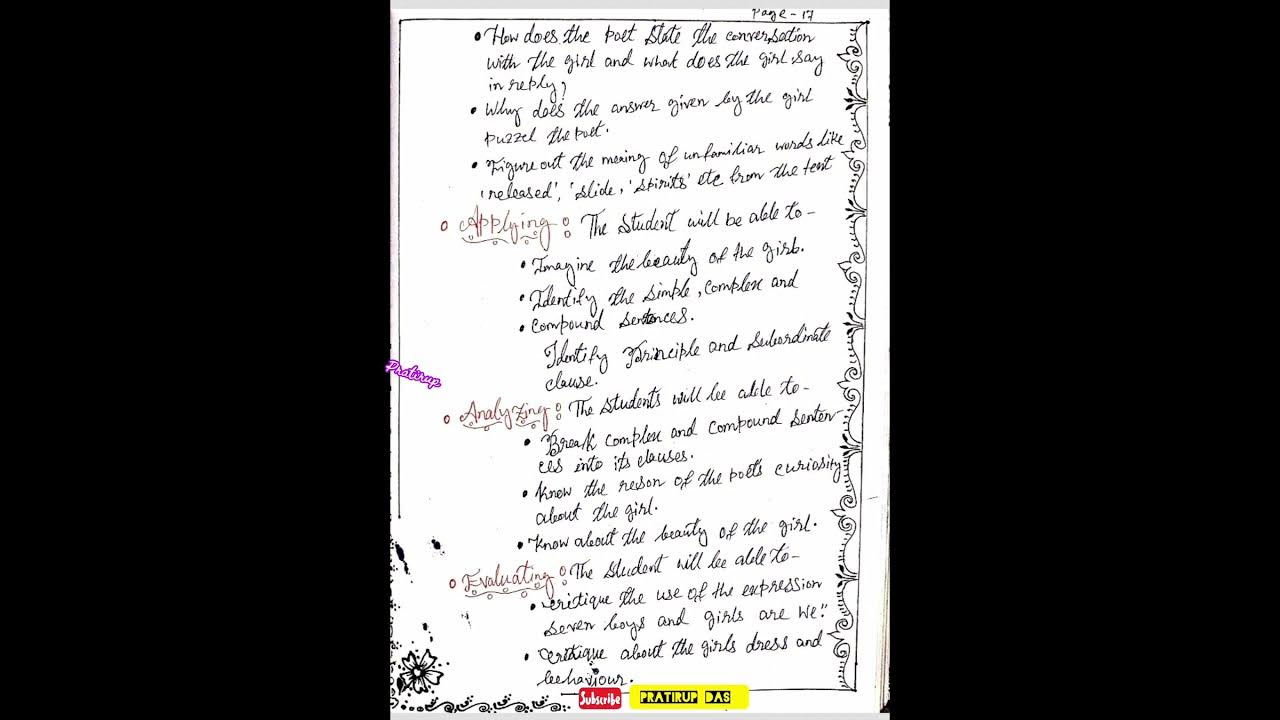 Page - 17
• How does the poet state the conversation
with the girl and what does the girl say
in reply?
• Why does the answer given by the girl
puzzel the poet.
• Figure out the mening of unfamiliar words like
'released', 'slide, 'spirits' etc from the text
Applying : The student will be able to -
• Imagine the beauty of the girl.
• Identify the simple, complex and
• compound sentences.
Identify Principle and subordinate
clause.
Pratirup
Analyzing : The students will be able to -
• Break complex and compound senten-
ces into its clauses.
• Know the reson of the poet's curiosity
about the girl.
• Know about the beauty of the girl.
Evaluating : The student will be able to -
• critique the use of the expression
seven boys and girls are we."
• critique about the girls dress and
behaviour.
Subscribe
PRATIRUP DAS